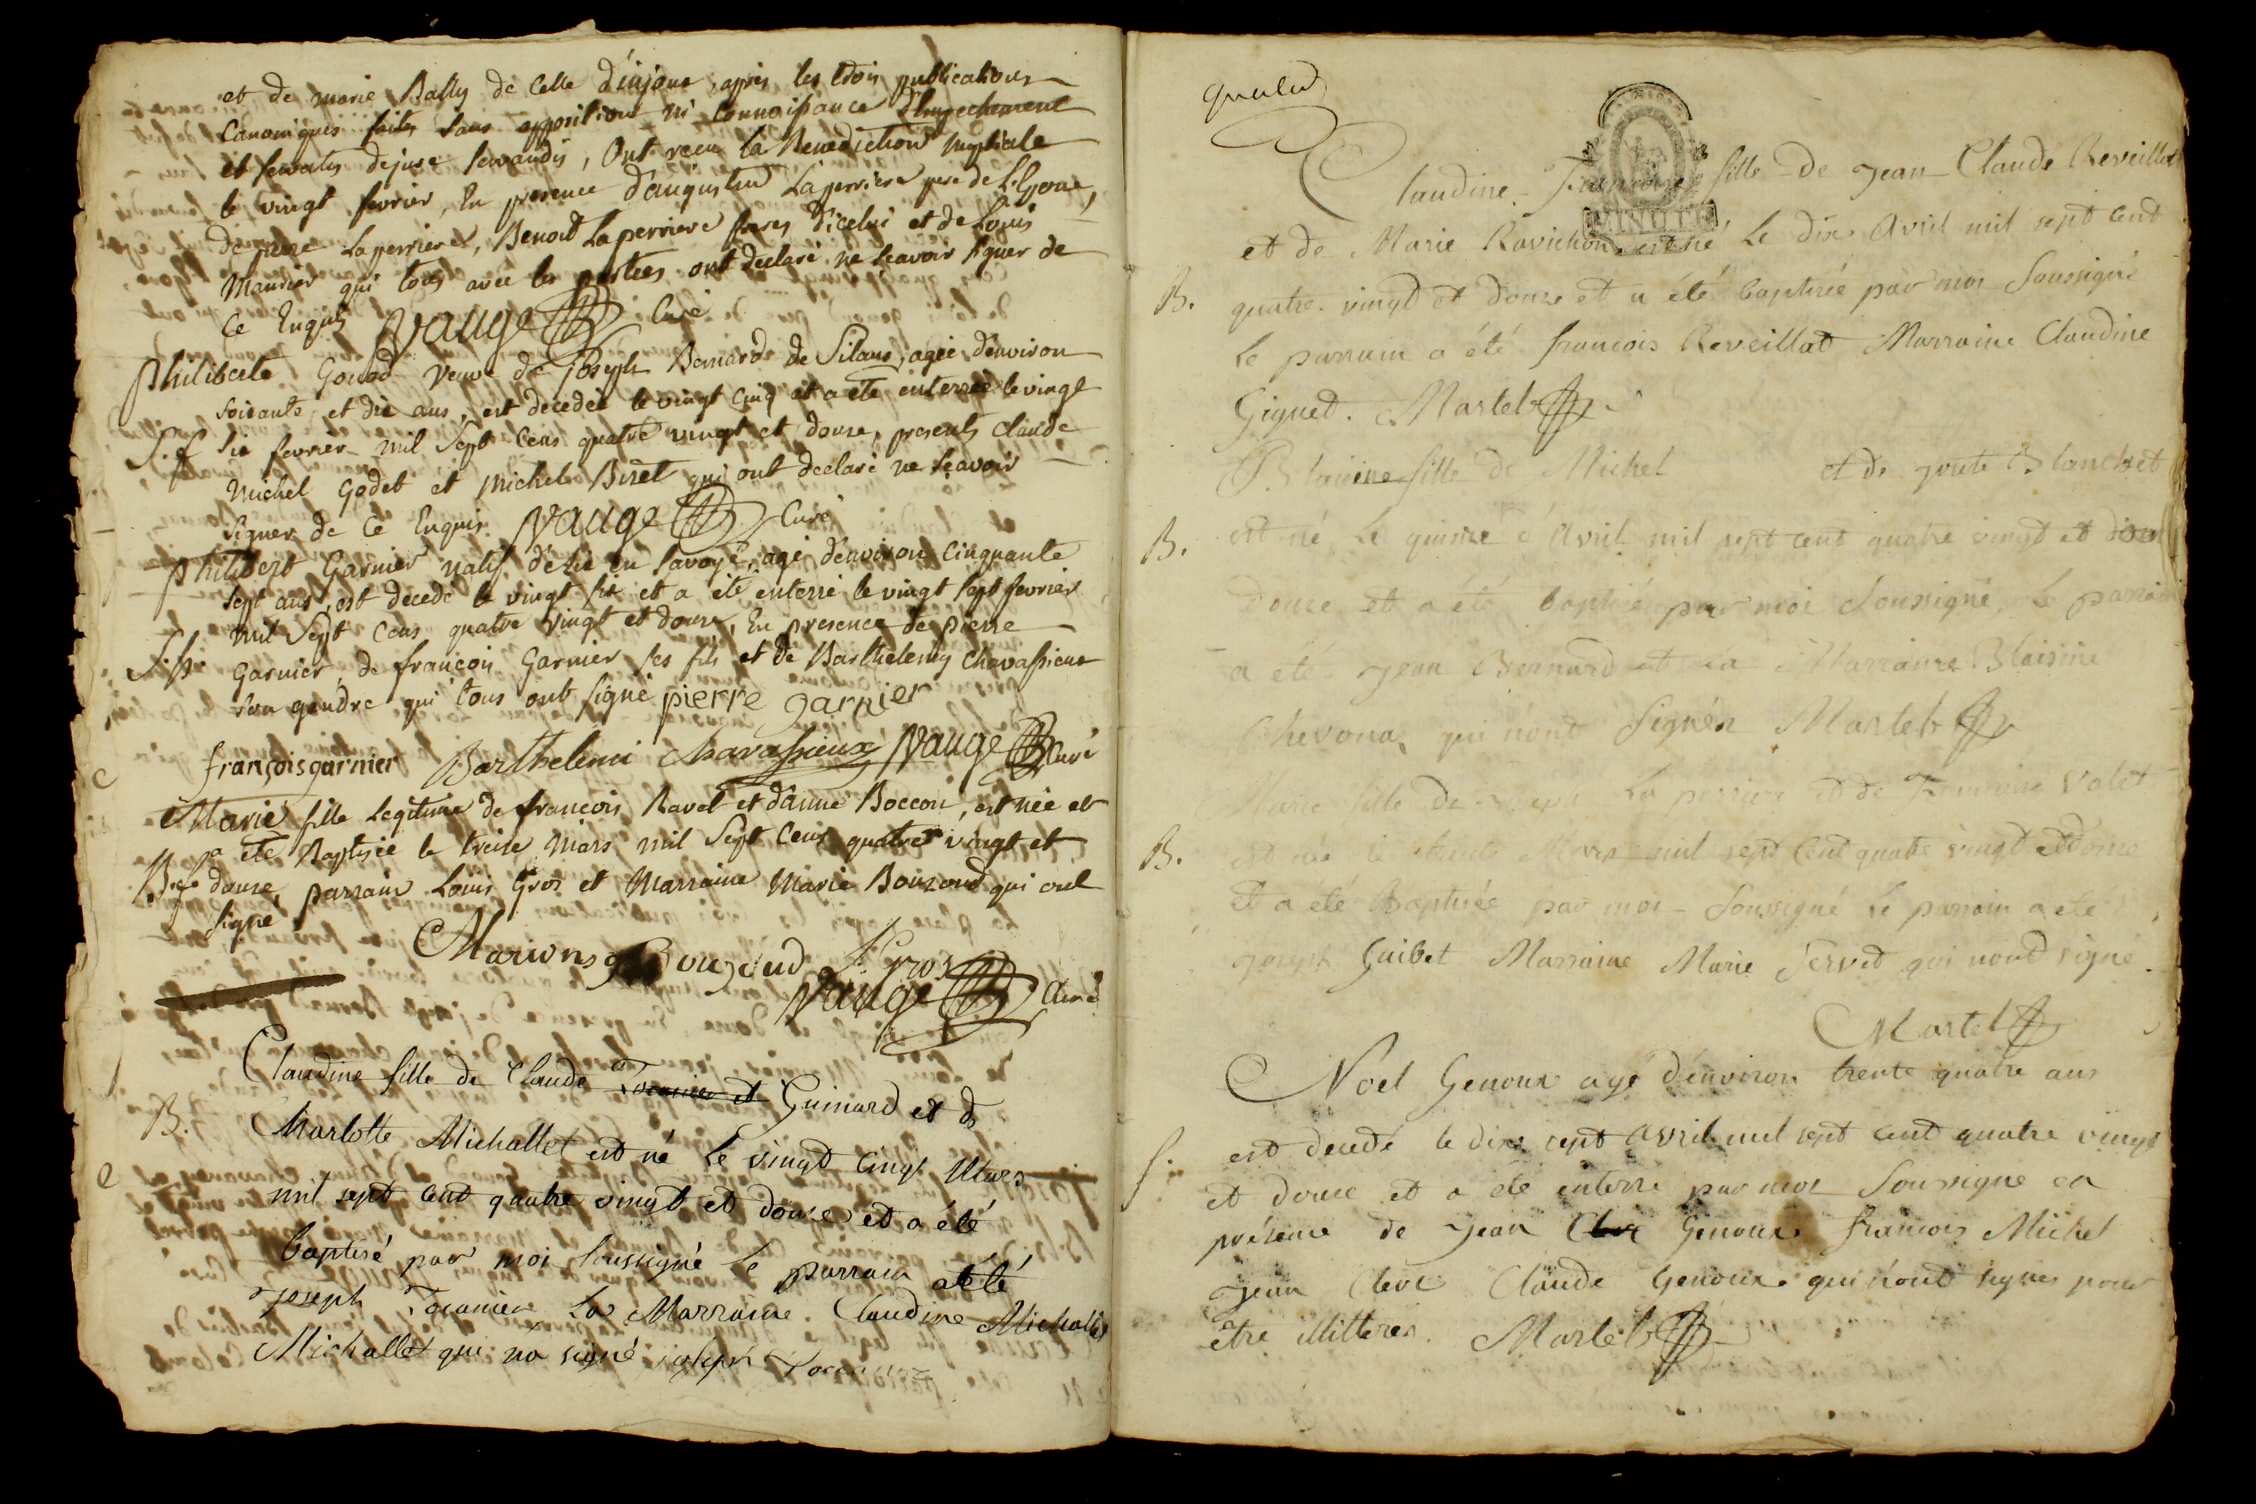 et de marie Bally de Celle d'injoux, après les trois publications
Canoniques faites sans opposition ni connoissance d'Empechement
et servatis dejure servandis, Ont recu la Benediction nuptiale
le vingt fevrier, En presence d'augustin Laperriere pere de L'Epoux,
de pierre Laperriere, Benoit Laperriere freres d'icelui et de Louis
Maurier qui tous avec les parties ont declaré ne scavoir signer de
Ce Enquis Vauge Curé
Philiberte Gonod veuve de joseph Bernard de Silans, agée d'environ
soixante et dix ans, est decedée le vingt cinq et a eté enterrée le vingt
S. f six fevrier mil Sept Cens quatre vingt et douze, presents Claude
Michel Godet et Michel Biret qui ont declaré ne scavoir
signer de Ce Enquis Vauge Curé
Philibert Garnier natif en Savoye, agé d'environ Cinquante
sept ans, est decedé le vingt six et a eté enterré le vingt sept fevrier
mil Sept Cens quatre vingt et douze, En presence de pierre
S. h. Garnier, de françois Garnier ses fils et de Barthelemy Chavassieux
son gendre qui tous ont signé pierre garnier
françois garnier Barthelemi Chavassieux Vauge Curé
Marie fille Legitime de francois Ravet et d'anne Boccon, est née et
a eté Baptisée le treize Mars mil Sept Cens quatre vingt et
B. f douze, parrain Louis Gros et Marraine Marie Bouzoud qui ont
signé
Bouzoud L. Gros
Vauge Curé
Claudine fille de Claude Guinard et de
B. Charlotte Michallet est né le vingt cinq Mars
mil sept cent quatre vingt et douze et a été
baptisé par moi soussigné le parrain a été
Joseph Tocanier La Marraine Claudine Michallet
Michallet qui na signé joseph
Claudine fille de Jean Claude Reveillat
MINUTE
et de Marie Ravichon est né Le dix Avril mil sept cent
B. quatre vingt et douze et a été baptisée par moi Soussigné
Le parrain a été francois Reveillat Marraine Claudine
Giguet. Martel
fille de Michel et de Blanchet
B. est né Le quinze d'Avril mil sept cent quatre vingt et
douze et a été baptisé par moi Soussigné, Le parrain
a été Jean Bernard et la Marraine Blaisine
Chevona qui n'ont Signés Martel
Marie fille de La perriere et de Valet
B. est née le trente Mars mil sept Cent quatre vingt et douze
et a été Baptisée par moi Soussigné Le parrain a été
Joseph Guibet Marraine Marie Servet qui n'ont signé.
Martel
Noel Genoux agé d'environ trente quatre ans
S. est decedé le dix sept Avril mil sept cent quatre vingt
et douze et a été enterré par moi Soussigné en
présence de Jean Genoux francois Michel
Jean Clerc Claude Genoux qui n'ont signés pour
être illitérés. Martel